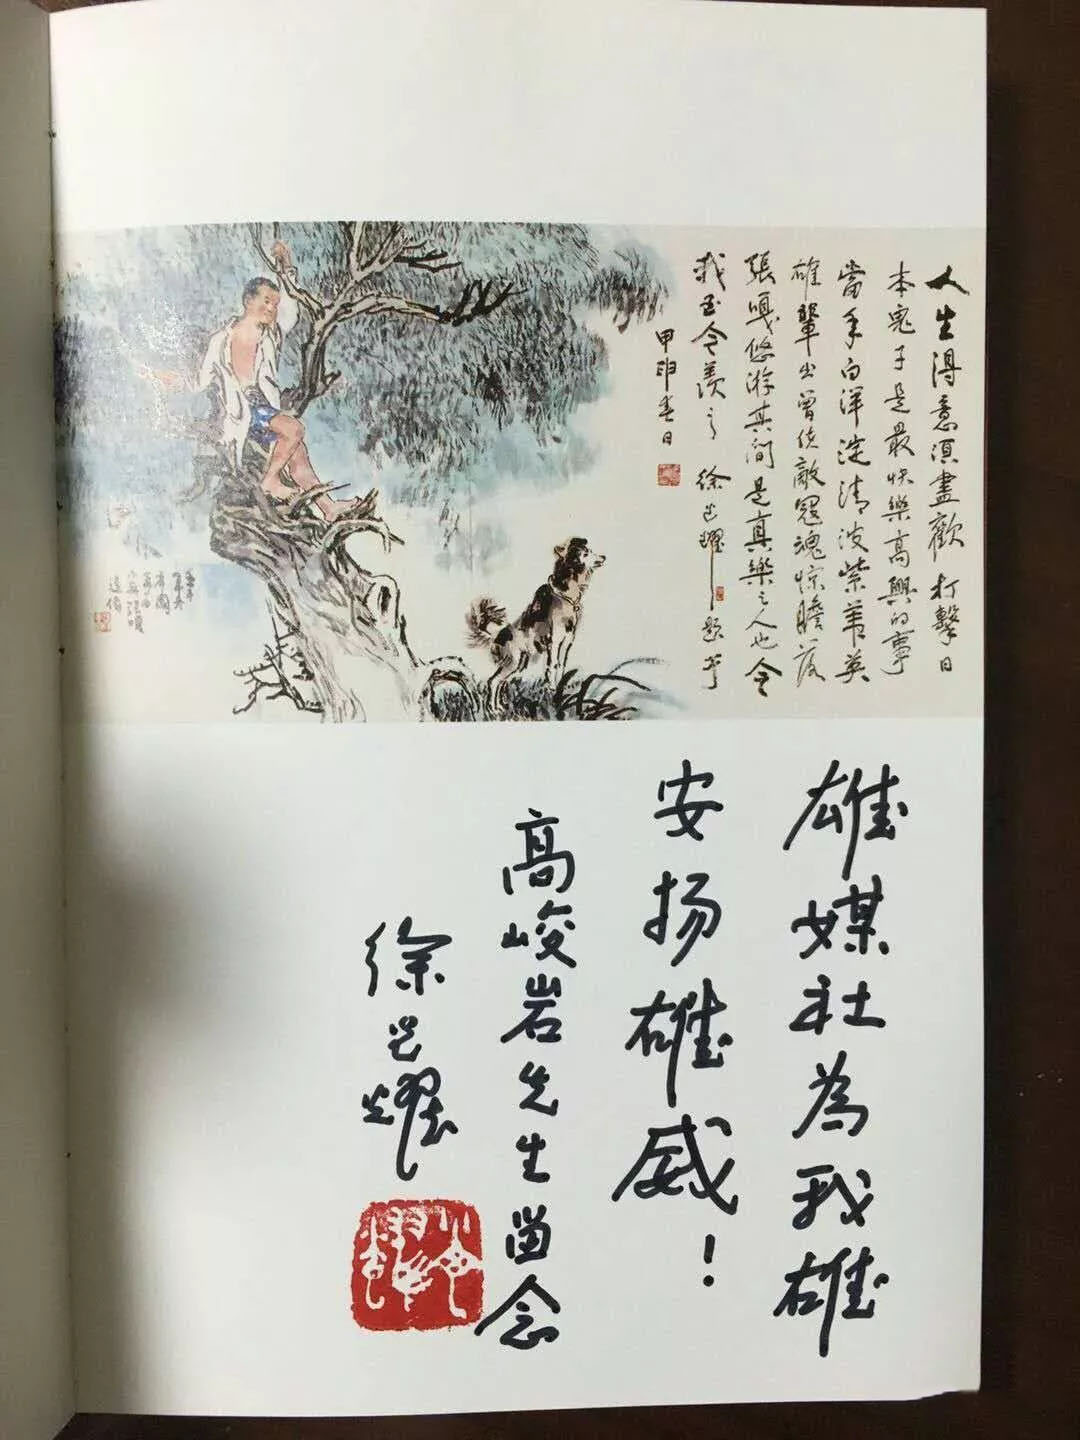 人生得意須盡歡打擊日
本鬼子是最快樂高興的事
當年白洋淀清波紫葦英
雄輩出曾使敵寇魂惊膽落
張嘎悠游其间是真樂之人也令
我至今羨之 徐光耀题
甲申春日
雄媒社為我雄
安扬雄威！
高峻岩先生留念
徐光耀